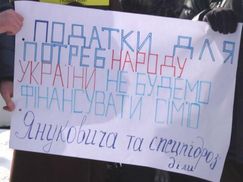 ПОДАТКИ ДЛЯ
ПОТРЕБ НАРОДУ
УКРАЇНИ НЕ БУДЕМО
ФІНАНСУВАТИ СІМ'Ю
Януковича та